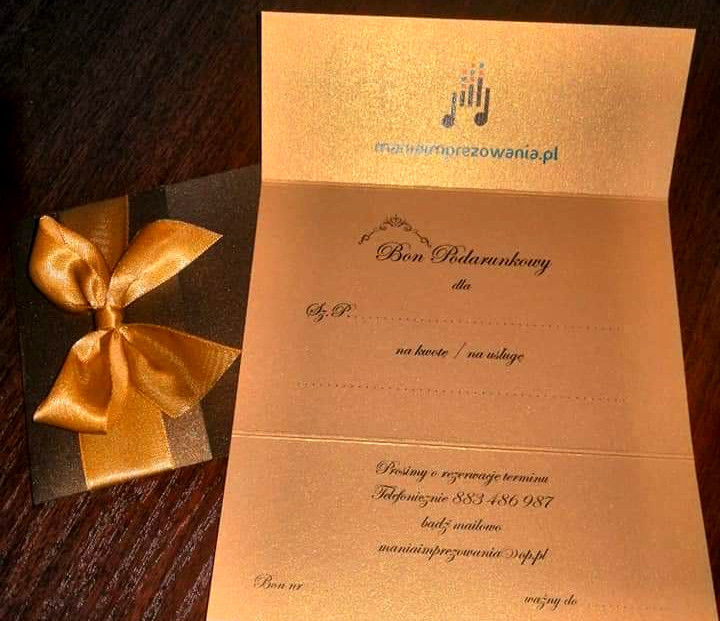 maniaimprezowania.pl
Bon Podarunkowy
dla
Sz.P.
na kwotę / na usługę
Prosimy o rezerwację terminu
Telefonicznie 883 486 987
bądź mailowo
maniaimprezowania@op.pl
Bon nr
ważny do